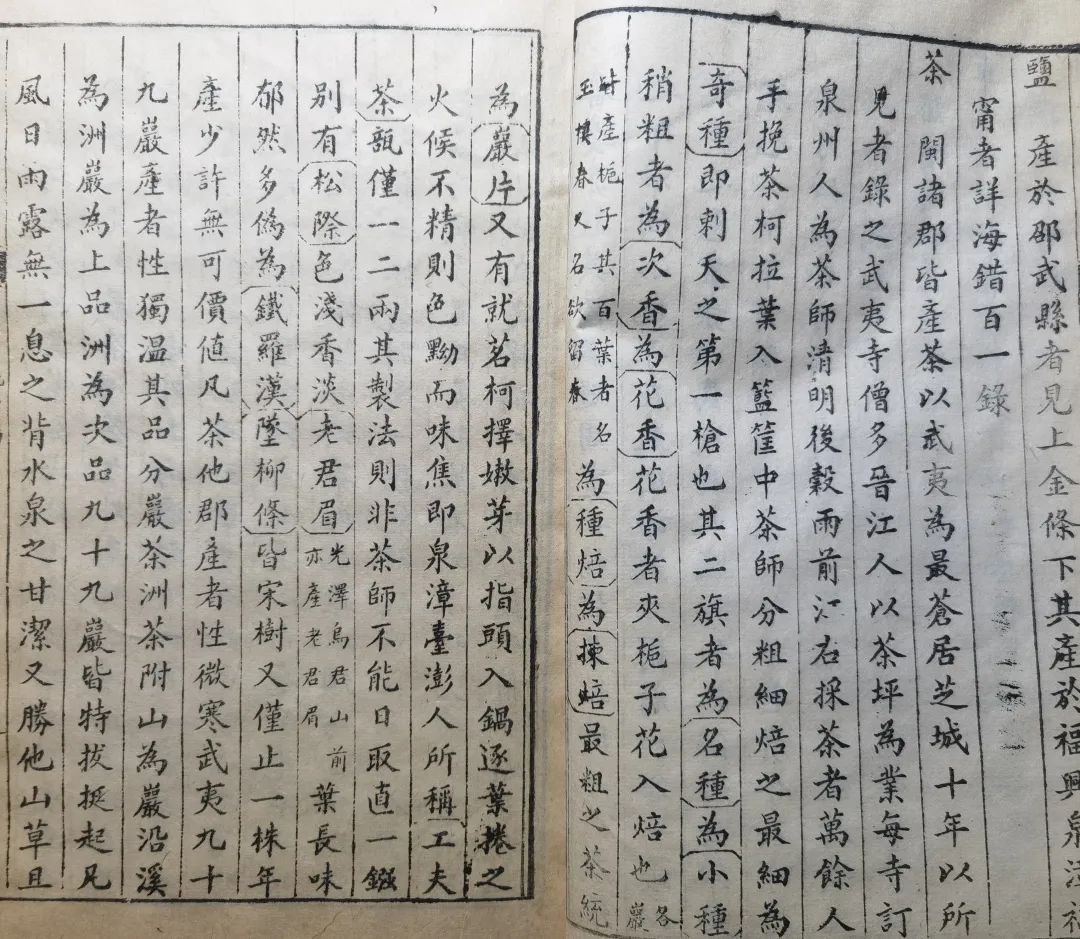 鹽 產於邵武縣者見上金條下其產於福興泉漳福
甯者詳海錯百一錄
茶 閩諸郡皆產茶以武夷為最蒼居芝城十年以所
見者錄之武夷寺僧多晉江人以茶坪為業每寺訂
泉州人為茶師清明後穀雨前江右採茶者萬餘人
手挽茶柯拉葉入籃筐中茶師分粗細焙之最細為
奇種即刺天之第一槍也其二旗者為名種為小種
稍粗者為次香為花香花香者夾梔子花入焙也各
巖
時產梔子其百葉者名
玉樓春又名欲留春
為種焙為揀焙最粗之茶統
為巖片又有就茗柯擇嫩芽以指頭入鍋逐葉捲之
火候不精則色黝而味焦即泉漳臺澎人所稱工夫
茶瓿僅一二兩其製法則非茶師不能日取直一鏹
別有松際色淺香淡老君眉
光澤烏君山前
亦產老君眉
葉長味
郁然多偽為鐵羅漢墜柳條皆宋樹又僅止一株年
產少許無可價值凡茶他郡產者性微寒武夷九十
九巖產者性獨溫其品分巖茶洲茶附山為巖沿溪
為洲巖為上品洲為次品九十九巖皆特拔挺起凡
風日雨露無一息之背水泉之甘潔又勝他山草且